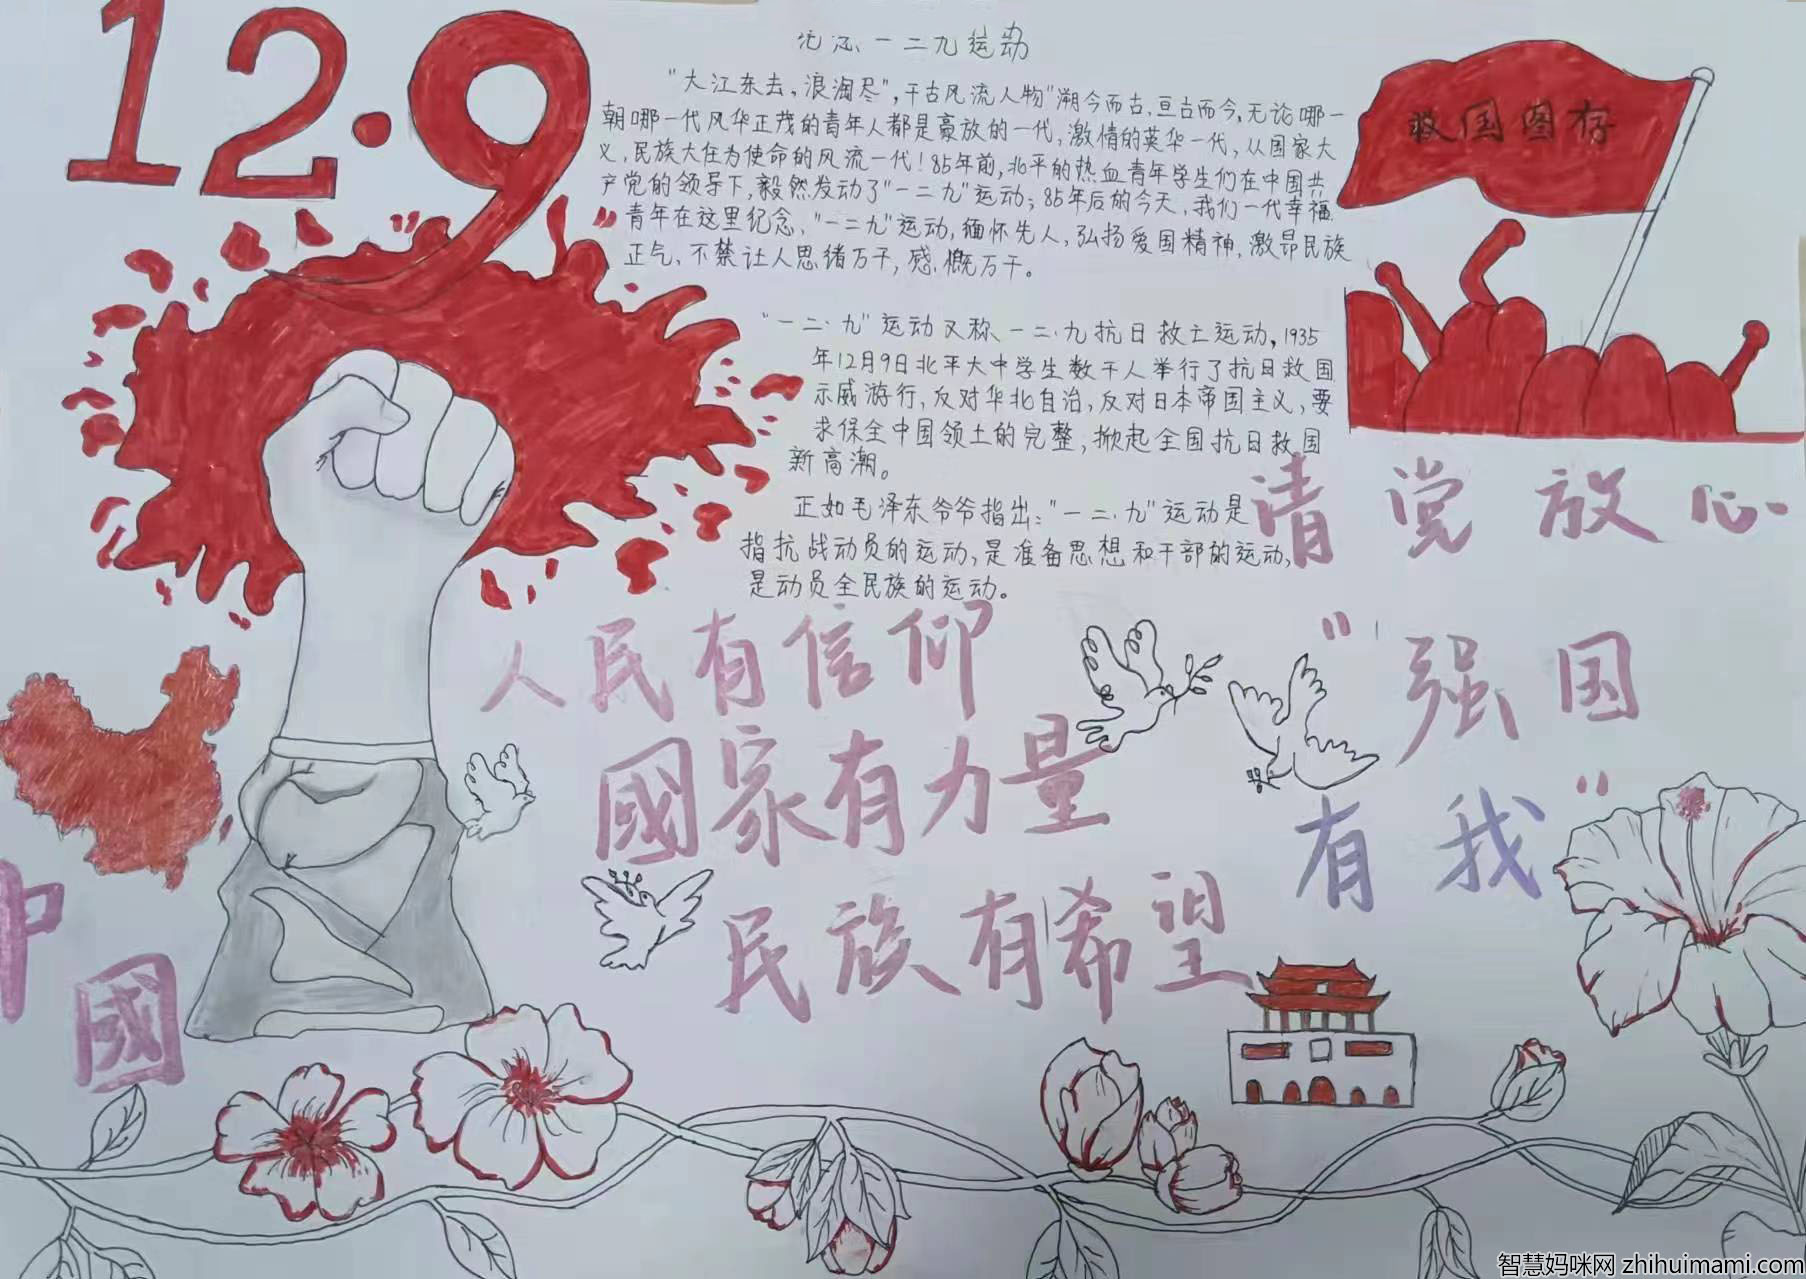 12·9
一二九运动
"大江东去,浪淘尽",千古风流人物"溯今而古,亘古而今,无论哪一
朝哪一代风华正茂的青年人都是豪放的一代,激情的英华一代,从国家大
义,民族大任为使命的风流一代!85年前,北平的热血青年学生们在中国共
产党的领导下,毅然发动了"一二九"运动;85年后的今天,我们一代幸福
青年在这里纪念,"一二九"运动,缅怀先人,弘扬爱国精神,激昂民族
正气,不禁让人思绪万千,感慨万千。
"一二·九"运动又称一二·九抗日救亡运动,1935
年12月9日北平大中学生数千人举行了抗日救国
示威游行,反对华北自治,反对日本帝国主义,要
求保全中国领土的完整,掀起全国抗日救国
新高潮。
正如毛泽东爷爷指出:"一二·九"运动是
指抗战动员的运动,是准备思想和干部的运动,
是动员全民族的运动。
救国图存
"请党放心
"强国
有我"
人民有信仰
國家有力量
民族有希望
中
國
智慧妈咪网 zhihuimami.com